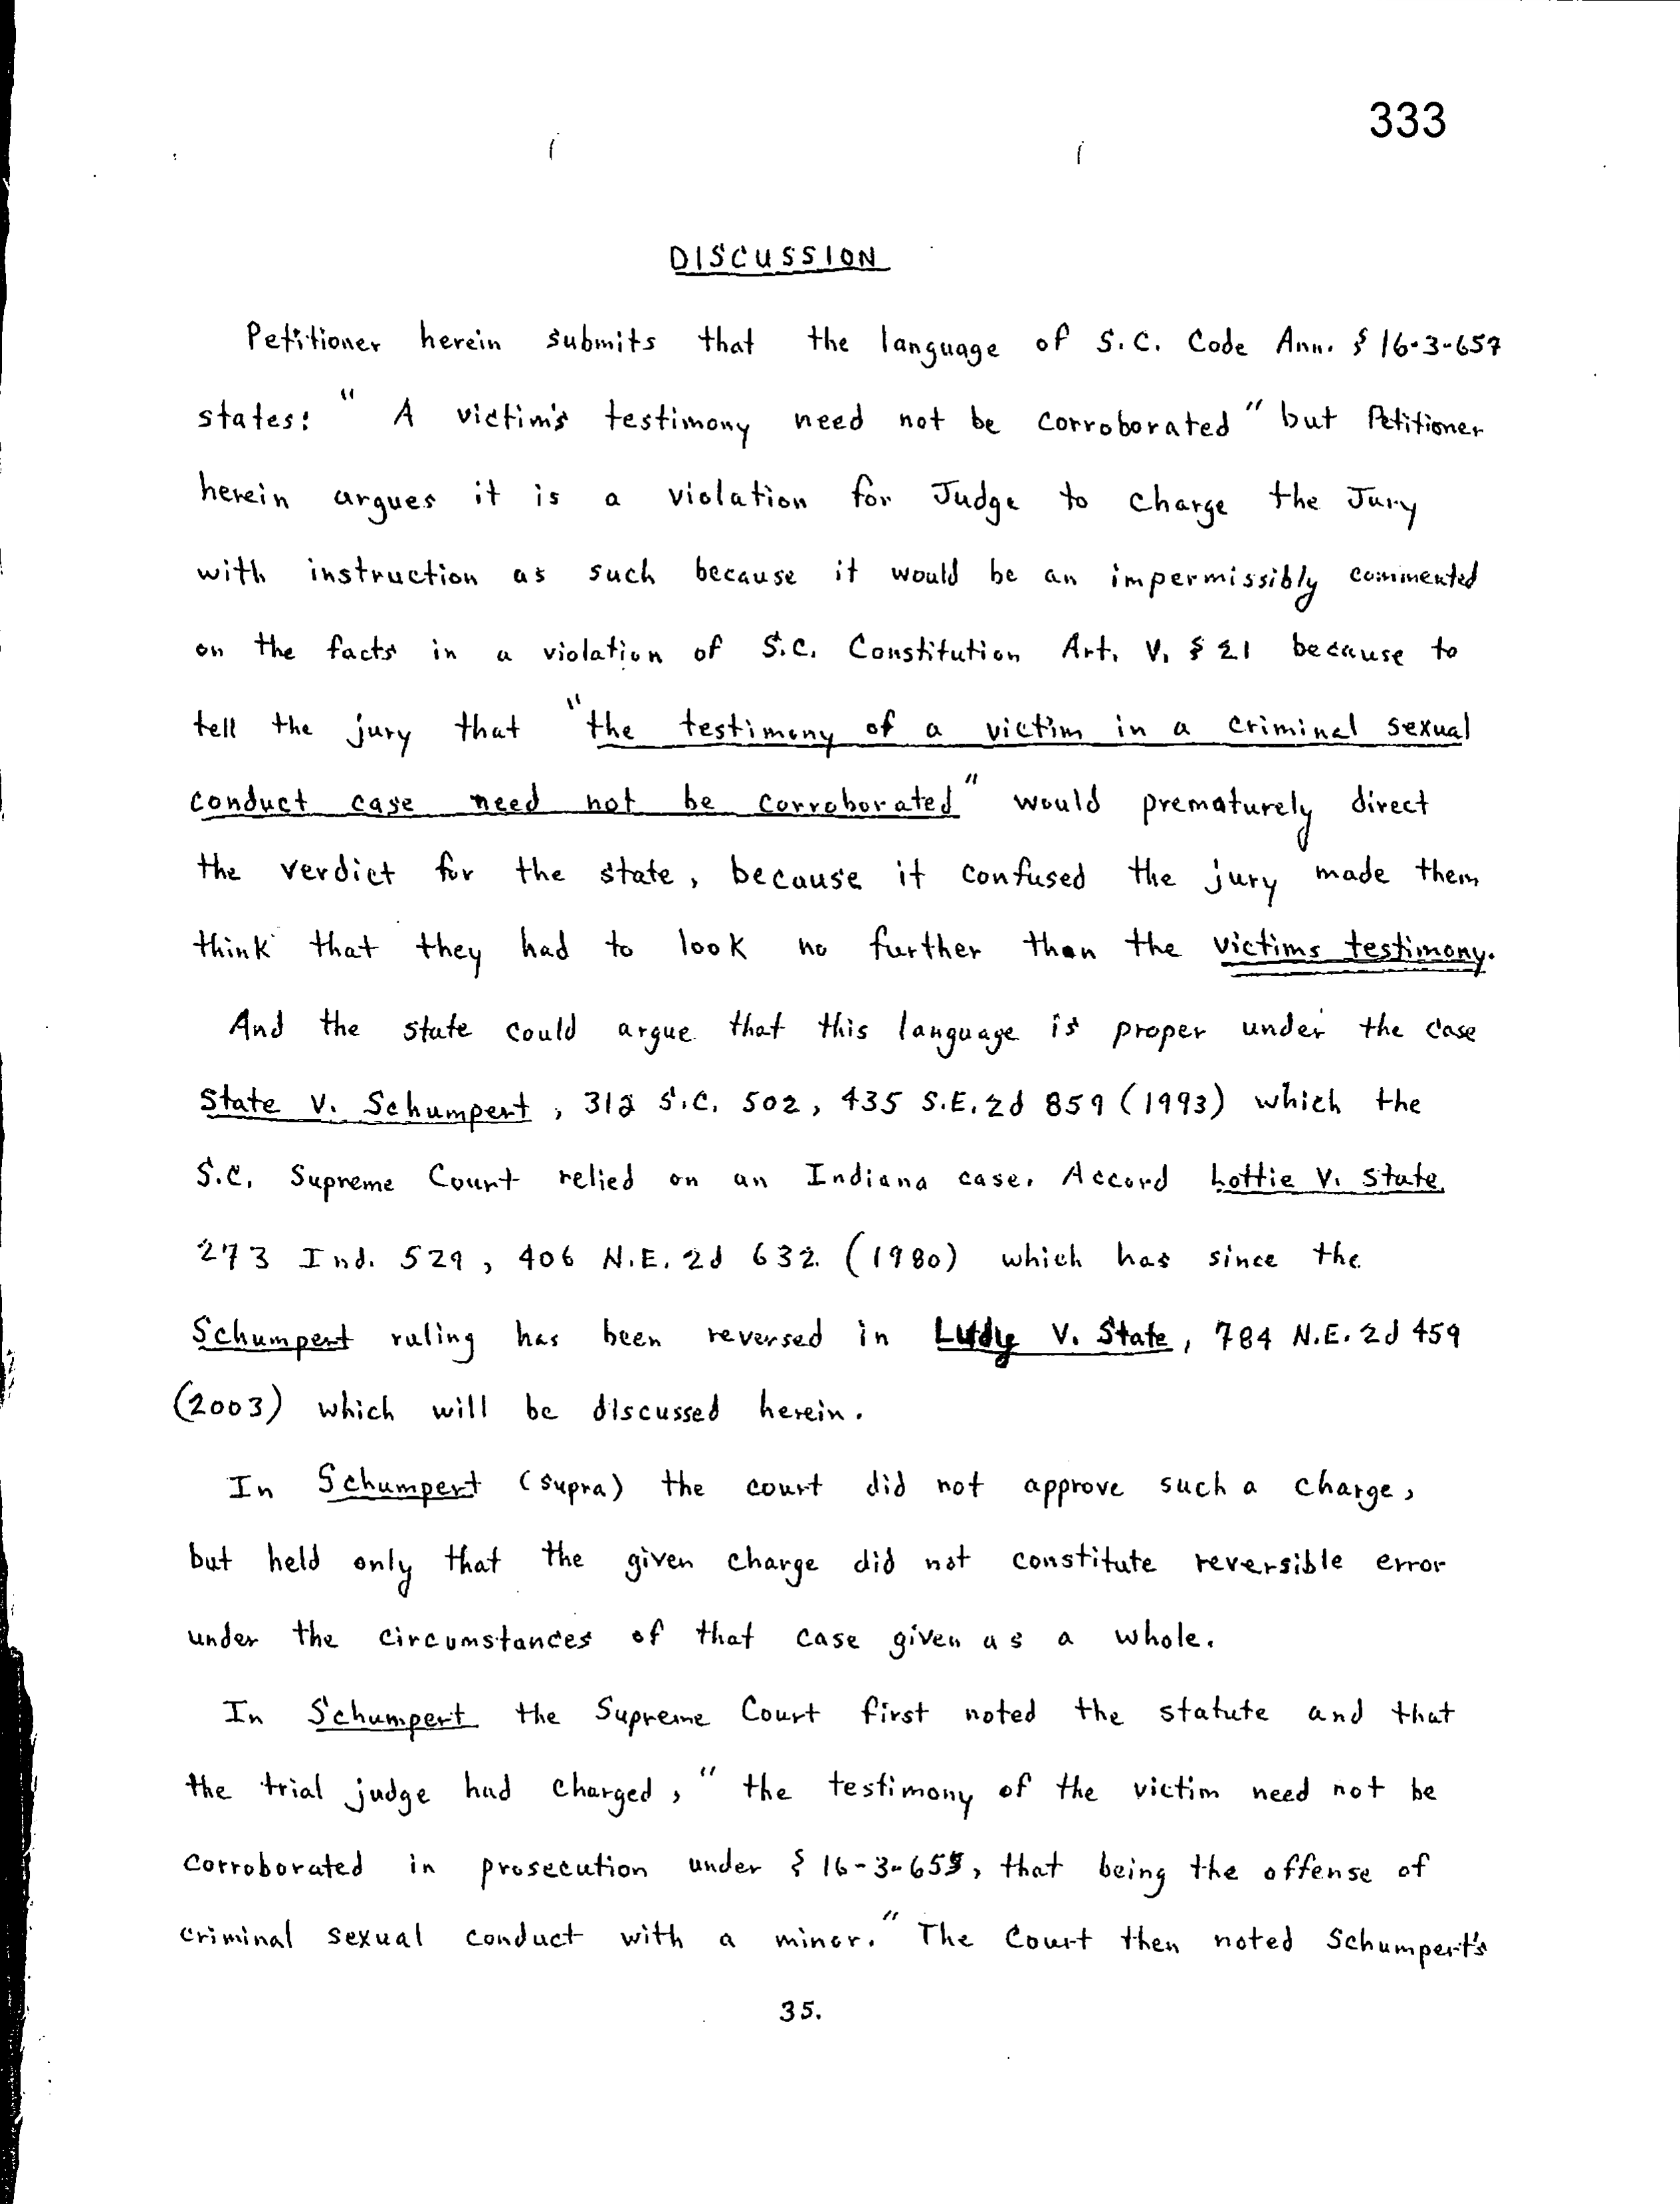 333
DISCUSSION
Petitioner herein submits that the language of S.C. Code Ann. § 16-3-657
states: " A victim's testimony need not be corroborated" but Petitioner
herein argues it is a violation for Judge to charge the Jury
with instruction as such because it would be an impermissibly commented
on the facts in a violation of S.C. Constitution Art. V. § 21 because to
tell the jury that "the testimony of a victim in a criminal sexual
conduct case need not be corroborated" would prematurely direct
the verdict for the state, because it confused the jury made them
think that they had to look no further than the victims testimony.
And the state could argue that this language is proper under the case
State v. Schumpert, 312 S.C. 502, 435 S.E.2d 859 (1993) which the
S.C. Supreme Court relied on an Indiana case. Accord Lottie v. State,
273 Ind. 529, 406 N.E.2d 632 (1980) which has since the
Schumpert ruling has been reversed in Ludy v. State, 784 N.E.2d 459
(2003) which will be discussed herein.
In Schumpert (supra) the court did not approve such a charge,
but held only that the given charge did not constitute reversible error
under the circumstances of that case given as a whole.
In Schumpert the Supreme Court first noted the statute and that
the trial judge had charged, " the testimony of the victim need not be
corroborated in prosecution under § 16-3-655, that being the offense of
criminal sexual conduct with a minor." The Court then noted Schumpert's
35.